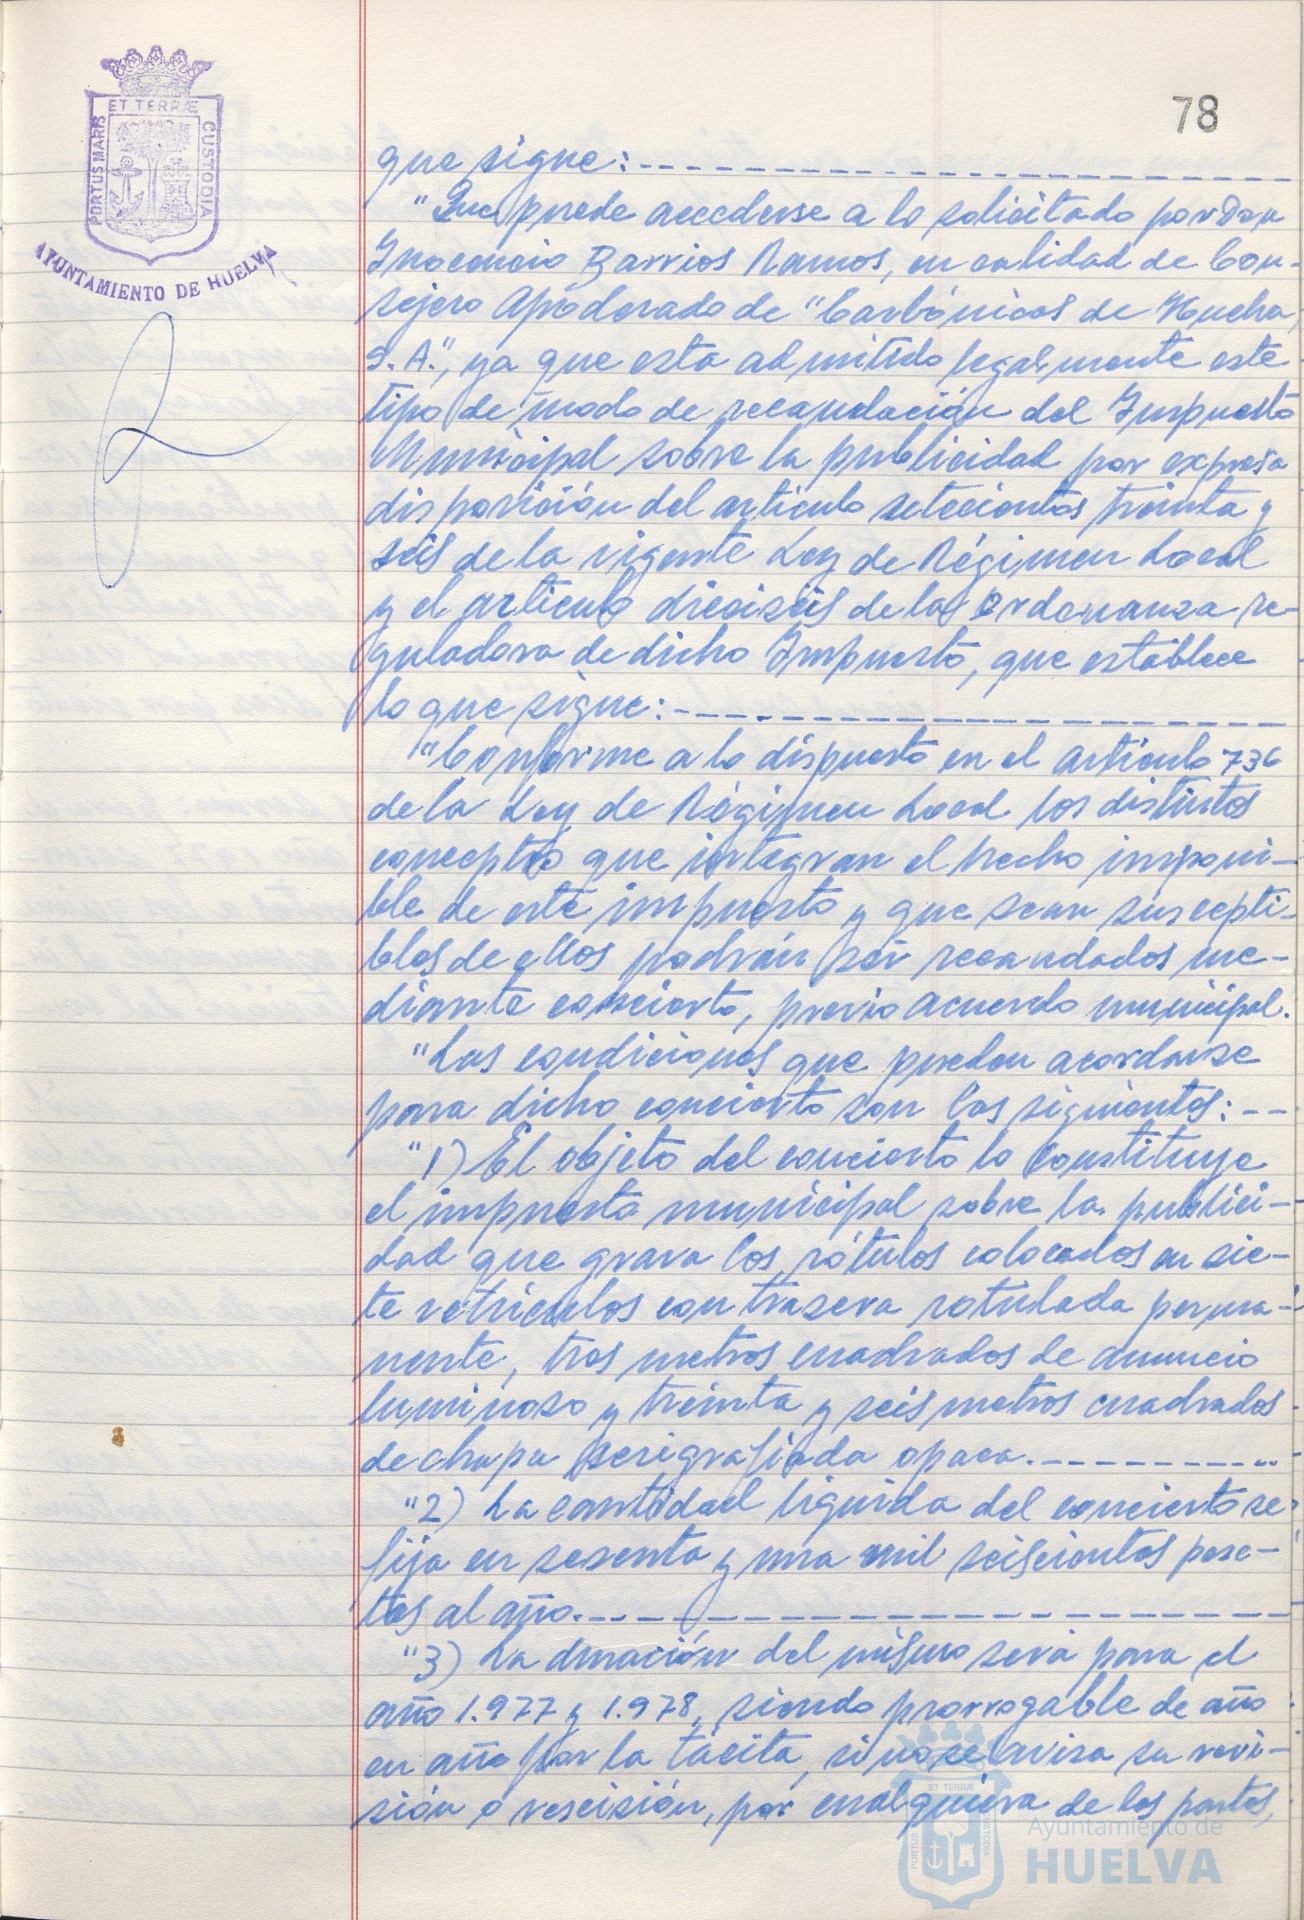 78
ET TERRÆ
PORTUS MARIS
CUSTODIA
AYUNTAMIENTO DE HUELVA
que sigue:
"Que puede accederse a lo solicitado por Don
Inocencio Barrios Ramos, en calidad de Con-
sejero Apoderado de "Carbónicas de Huelva,
S.A.", ya que esta admitido legalmente este
tipo de modo de recaudación del Impuesto
Municipal sobre la publicidad por expresa
disposición del artículo setecientos treinta y
seis de la vigente Ley de Régimen Local
y el artículo dieciséis de la Ordenanza re-
guladora de dicho Impuesto, que establece
lo que sigue:
"Conforme a lo dispuesto en el artículo 736
de la Ley de Régimen Local los distintos
conceptos que integran el hecho imponi-
ble de este impuesto y que sean suscepti-
bles de ellos podrán ser recaudados me-
diante concierto, previo acuerdo municipal.
"Las condiciones que pueden acordarse
para dicho concierto son las siguientes:
"1) El objeto del concierto lo constituye
el impuesto municipal sobre la publici-
dad que grava los rótulos colocados en sie-
te vehículos con trasera rotulada perma-
nente, tres metros cuadrados de anuncio
luminoso y treinta y seis metros cuadrados
de chapa serigrafiada opaca.
"2) La cantidad líquida del concierto se
fija en sesenta y una mil seiscientas pese-
tas al año.
"3) La duración del mismo será para el
año 1.977 y 1.978, siendo prorrogable de año
en año por la tácita, si no se avisa su revi-
sión o rescisión, por cualquiera de las partes,
ET TERRÆ
PORTUS
CUSTODIA
Ayuntamiento de
HUELVA